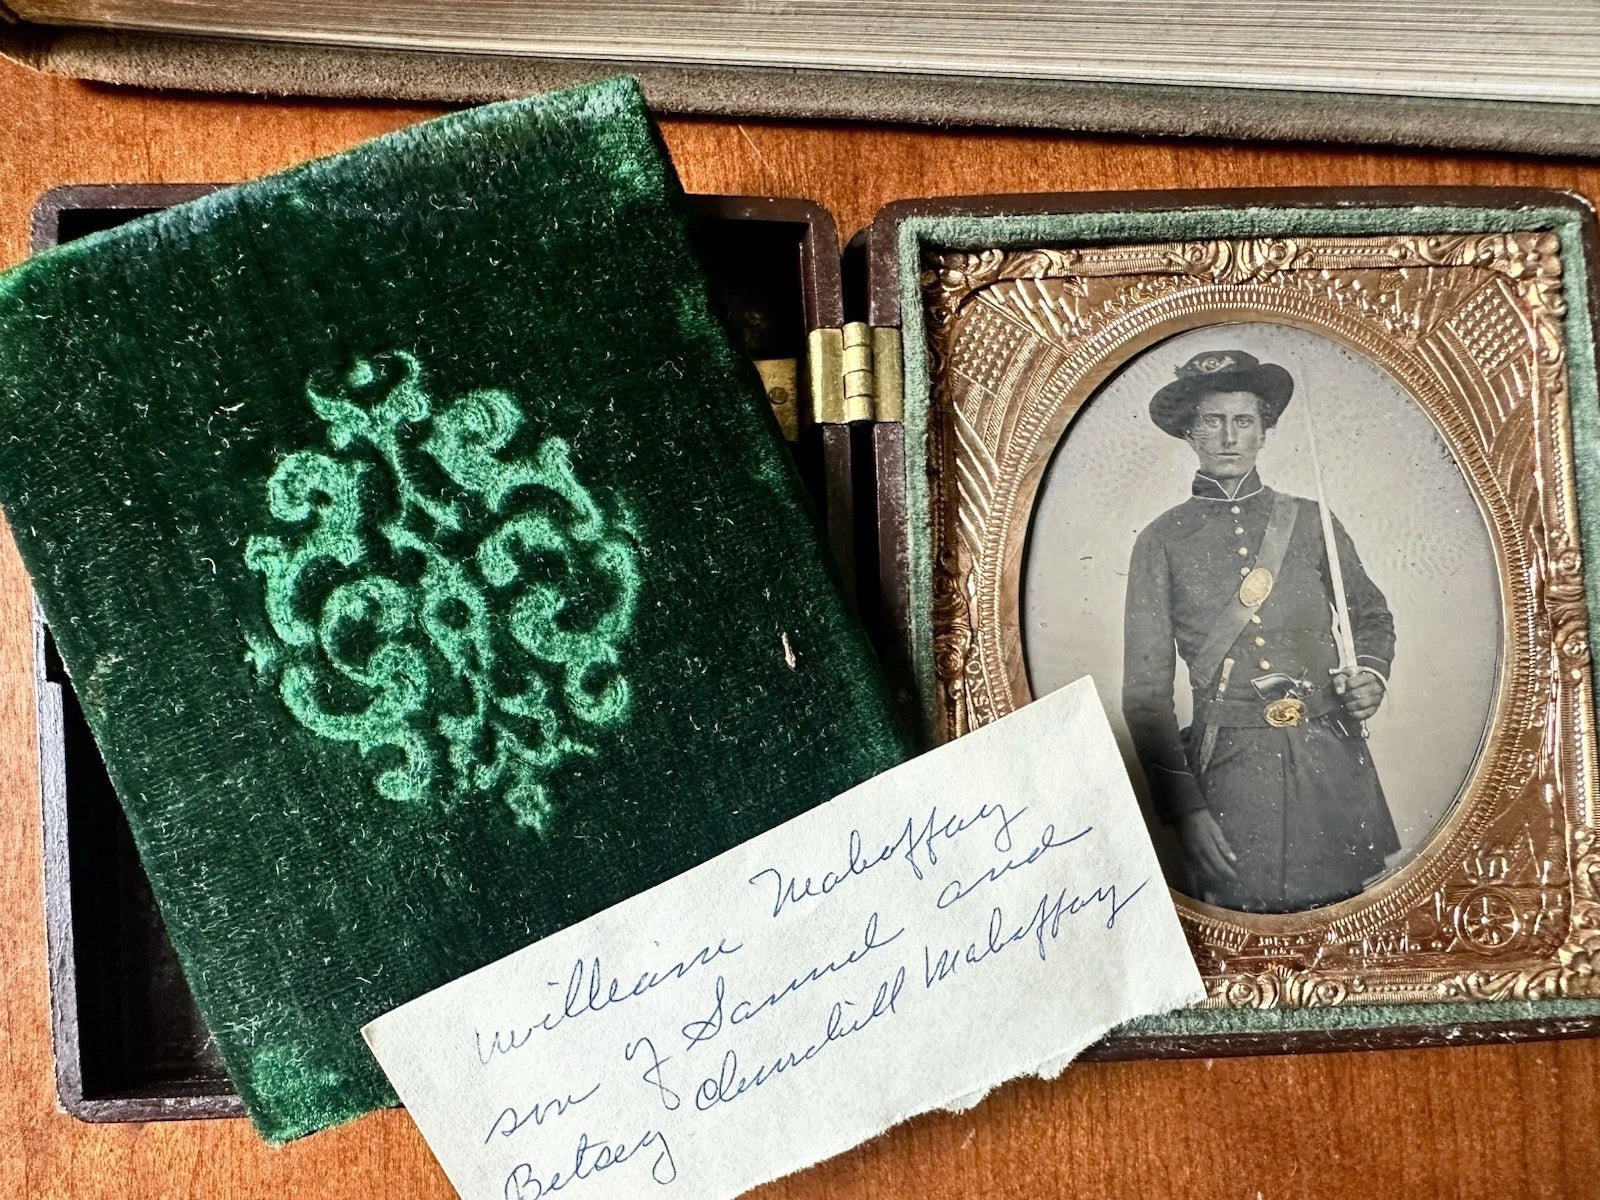 William Mahaffay
son of Samuel and
Betsey Churchill Mahaffay